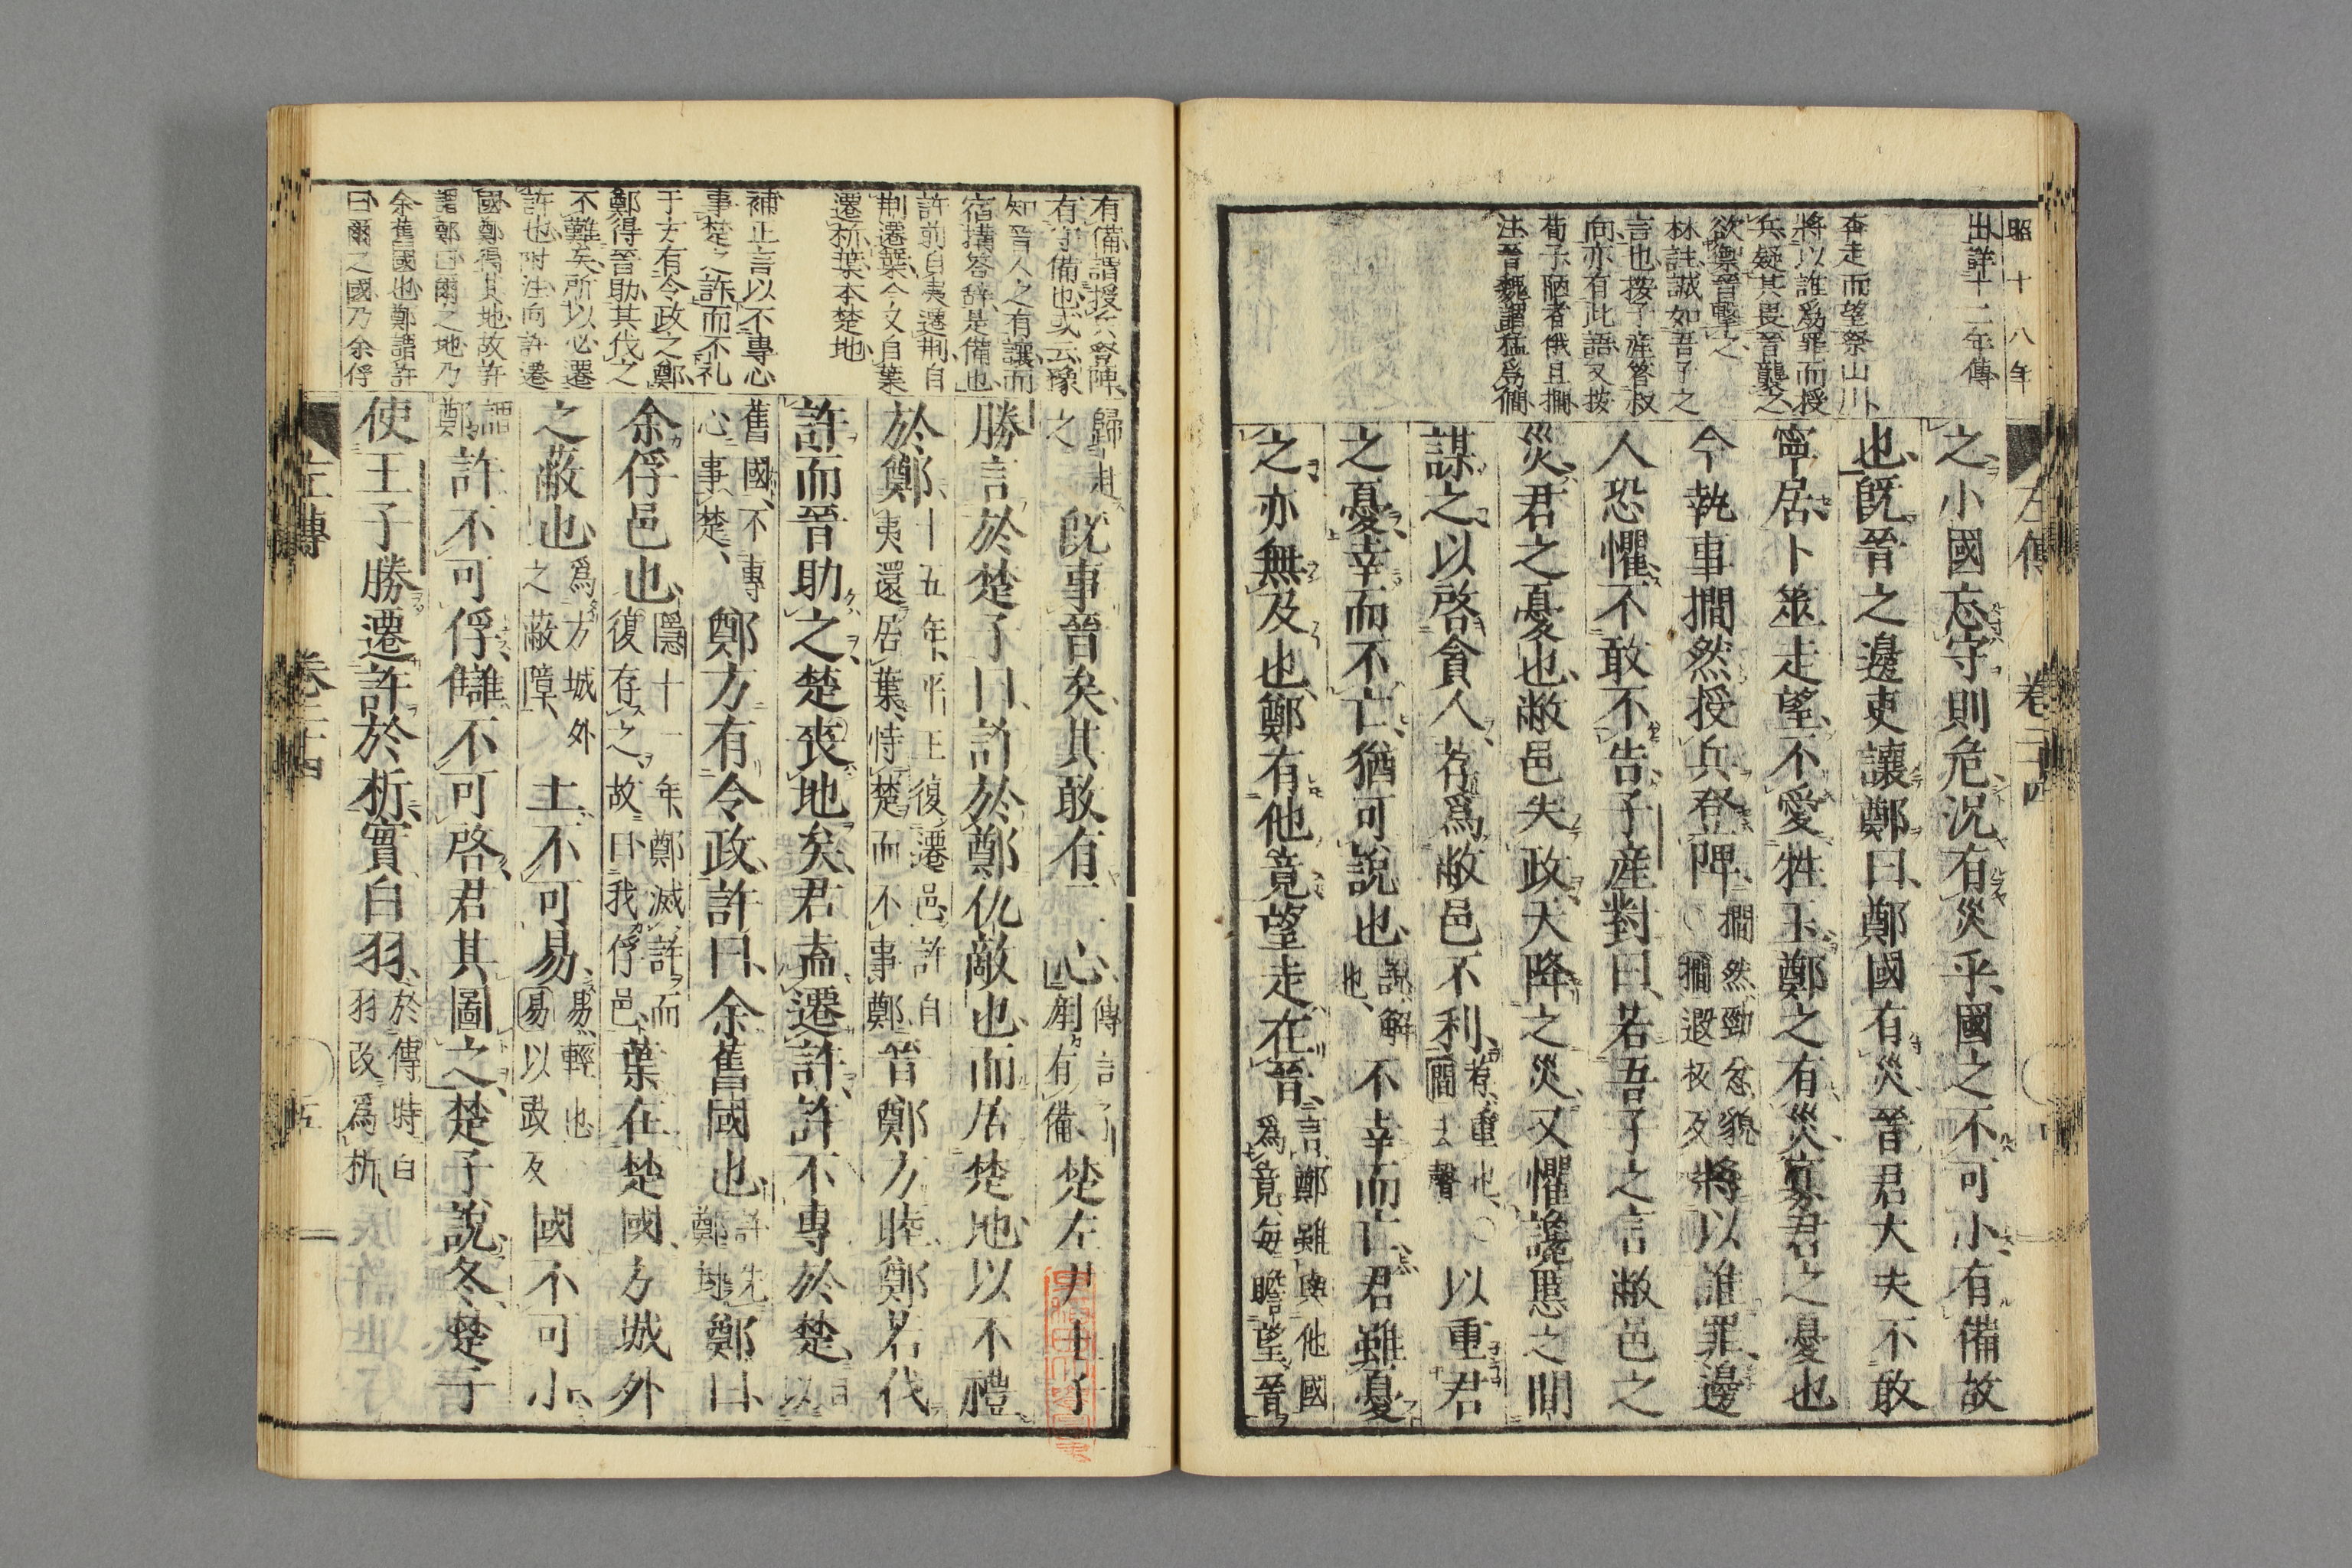 昭十八年
出詳十二年傳
奔走而望祭山川
將以誰爲罪而授
兵疑其畏晉襲之
欲禦晉擊之
林註誠如吾子之
言也按子產答叔
向亦有此語又按
荀子陋者俄且僩
注晉魏謂猛爲僩
左傳 卷二十四
之小國忘守則危況有災乎國之不可小有備故
也既晉之邊吏讓鄭曰鄭國有災晉君大夫不敢
寧居卜筮走望不愛牲玉鄭之有災寡君之憂也
今執事撊然授兵登陴撊然勁忿貌○撊遐板反將以誰罪邊
人恐懼不敢不告子產對曰若吾子之言敝邑之
災君之憂也敝邑失政天降之災又懼讒慝之間
謀之以啓貪人荐爲敝邑不利荐重也○間去聲以重君
之憂幸而不亡猶可說也說解也不幸而亡君雖憂
之亦無及也鄭有他竟望走在晉言鄭雖與他國爲竟每瞻望晉
有備謂授兵登陣
有守備也或云豫
知晉人之有讓而
宿搆答辭是備也
許前自夷遷荆自
荆遷葉今又自葉
遷析葉本楚地
補正言以不專心
事楚之許而不礼
于方有令政之鄭
鄭得晉助其伐之
不難矣所以必遷
許也附注向許遷
國鄭得其地故許
謂鄭曰爾之地乃
余舊國也鄭謂許
曰爾之國乃余俘
歸赴之既事晉矣其敢有二心傳言子產有備楚左尹王子
勝言於楚子曰許於鄭仇敵也而居楚地以不禮
於鄭十五年平王復遷邑許自夷還居葉恃楚而不事鄭晉鄭方睦鄭若伐
許而晉助之楚喪地矣君盍遷許許不專於楚自以
舊國不專心事楚鄭方有令政許曰余舊國也許先鄭封鄭曰
余俘邑也隱十一年鄭滅許而復存之故曰我俘邑葉在楚國方城外
之蔽也爲方城外之蔽障土不可易易輕也易以豉反國不可小
謂鄭許不可俘讎不可啓君其圖之楚子說冬楚子
使王子勝遷許於析實白羽於傳時白羽改爲析
左傳 卷二十四 五